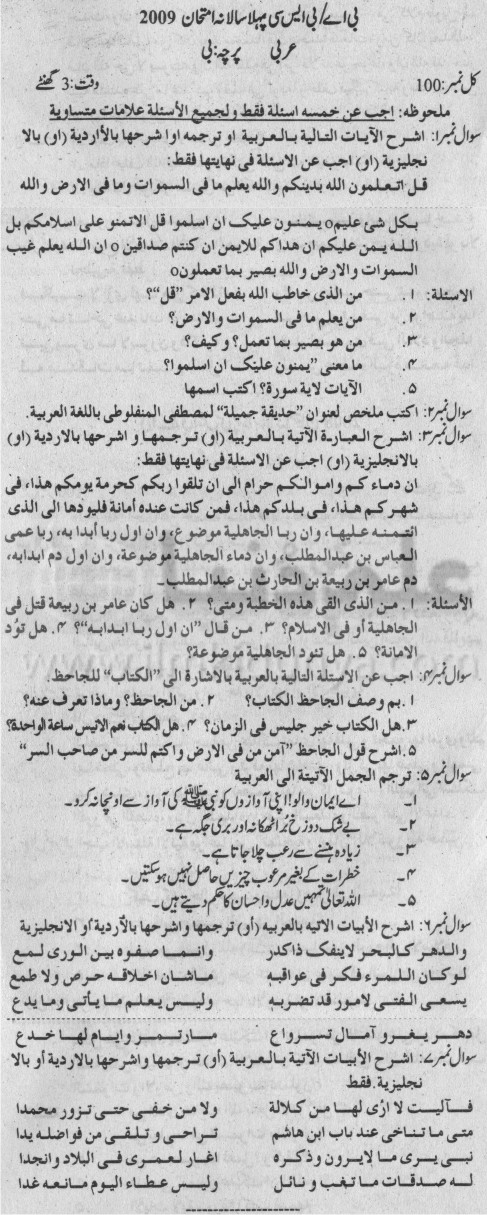 بی اے/بی ایس سی پہلا سالانہ امتحان 2009
عربی پرچہ: بی
کل نمبر: 100 وقت: 3 گھنٹے
ملحوظہ: اجب عن خمسه اسئلة فقط ولجميع الأسئلة علامات متساوية
سوال نمبر۱: اشرح الآيات التالية بالعربية او ترجمه اوا شرحها بالأردية (او) بالا
نجليزية (او) اجب عن الاسئلة فى نهايتها فقط:
قل اتعلمون الله بدينكم والله يعلم ما فى السموات وما فى الارض والله
بكل شئ عليم٥ يمنون عليك ان اسلموا قل الاتمنو على اسلامكم بل
الله يمن عليكم ان هداكم للايمن ان كنتم صداقين ٥ ان الله يعلم غيب
السموات والارض والله بصير بما تعملون٥
الاسئلة: ۱. من الذى خاطب الله بفعل الامر "قل"؟
۲. من يعلم ما فى السموات والارض؟
۳. من هو بصير بما تعمل؟ وكيف؟
۴. ما معنى "يمنون عليك ان اسلموا؟
۵. الآيات لاية سورة؟ اكتب اسمها
سوال نمبر۲: اكتب ملخص لعنوان "حديقة جميلة" لمصطفى المنفلوطى باللغة العربية.
سوال نمبر۳: اشرح العبارة الآتية بالعربية (او) ترجمها و اشرحها بالاردية (او)
بالانجليزية (او) اجب عن الاسئلة فى نهايتها فقط:
ان دماء كم واموالكم حرام الى ان تلقوا ربكم كحرمة يومكم هذا، فى
شهركم هذا، فى بلدكم هذا، فمن كانت عنده أمانة فليودها الى الذى
ائتمنه عليها، وان ربا الجاهلية موضوع، وان اول ربا أبدا به، ربا عمى
العباس بن عبدالمطلب، وان دماء الجاهلية موضوعة، وان اول دم ابدابه،
دم عامر بن ربيعة بن الحارث بن عبدالمطلب.
الأسئلة: ۱. من الذى القى هذه الخطبة ومتى؟ ۲. هل كان عامر بن ربيعة قتل فى
الجاهلية أو فى الاسلام؟ ۳. من قال "ان اول ربا ابدابه"؟ ۴. هل تؤد
الامانة؟ ۵. هل تنود الجاهلية موضوعة؟
سوال نمبر۴: اجب عن الاسئلة التالية بالعربية بالاشارة الى "الكتاب" للجاحظ.
۱. بم وصف الجاحظ الكتاب؟ ۲. من الجاحظ؟ وماذا تعرف عنه؟
۳. هل الكتاب خير جليس فى الزمان؟ ۴. هل الكتاب نعم الانيس ساعة الواحدة؟
۵. اشرح قول الجاحظ "آمن من فى الارض واكتم للسر من صاحب السر"
سوال نمبر۵: ترجم الجمل الآتيتة الى العربية
۱۔ اے ایمان والو! اپنی آوازوں کو نبی ﷺ کی آواز سے اونچا نہ کرو۔
۲۔ بے شک دوزخ بُرا ٹھکانہ اور بری جگہ ہے۔
۳۔ زیادہ ہنسنے سے رعب چلا جاتا ہے۔
۴۔ خطرات کے بغیر مرغوب چیزیں حاصل نہیں ہوسکتیں۔
۵۔ اللہ تعالیٰ تمہیں عدل واحسان کا حکم دیتے ہیں۔
سوال نمبر۶: اشرح الأبيات الاتيه بالعربيه (أو) ترجمها واشرحها بالأردية أو الانجليزية
والدهر كالبحر لاينفك ذاكدر وانما صفوه بين الورى لمع
لوكان للمرء فكر فى عواقبه ماشان اخلاقه حرص ولا طمع
يسعى الفتى لامور قد تضربه وليس يعلم ما يأتى وما يدع
دهر يغرو آمال تسرواع مارتمر وايام لها خدع
سوال نمبر۷: اشرح الأبيات الآتية بالعربية (أو) ترجمها واشرحها بالاردية أو بالا
نجليزية. فقط
فآليت لا ارٔى لها من كلالة ولا من خفى حتى تزور محمدا
متى ما تناخى عند باب ابن هاشم تراحى و تلقى من فواضله يدا
نبى يرى ما لايرون وذكره اغار لعمرى فى البلاد وانجدا
له صدقات ما تغب و نائل وليس عطاء اليوم مانعه غدا